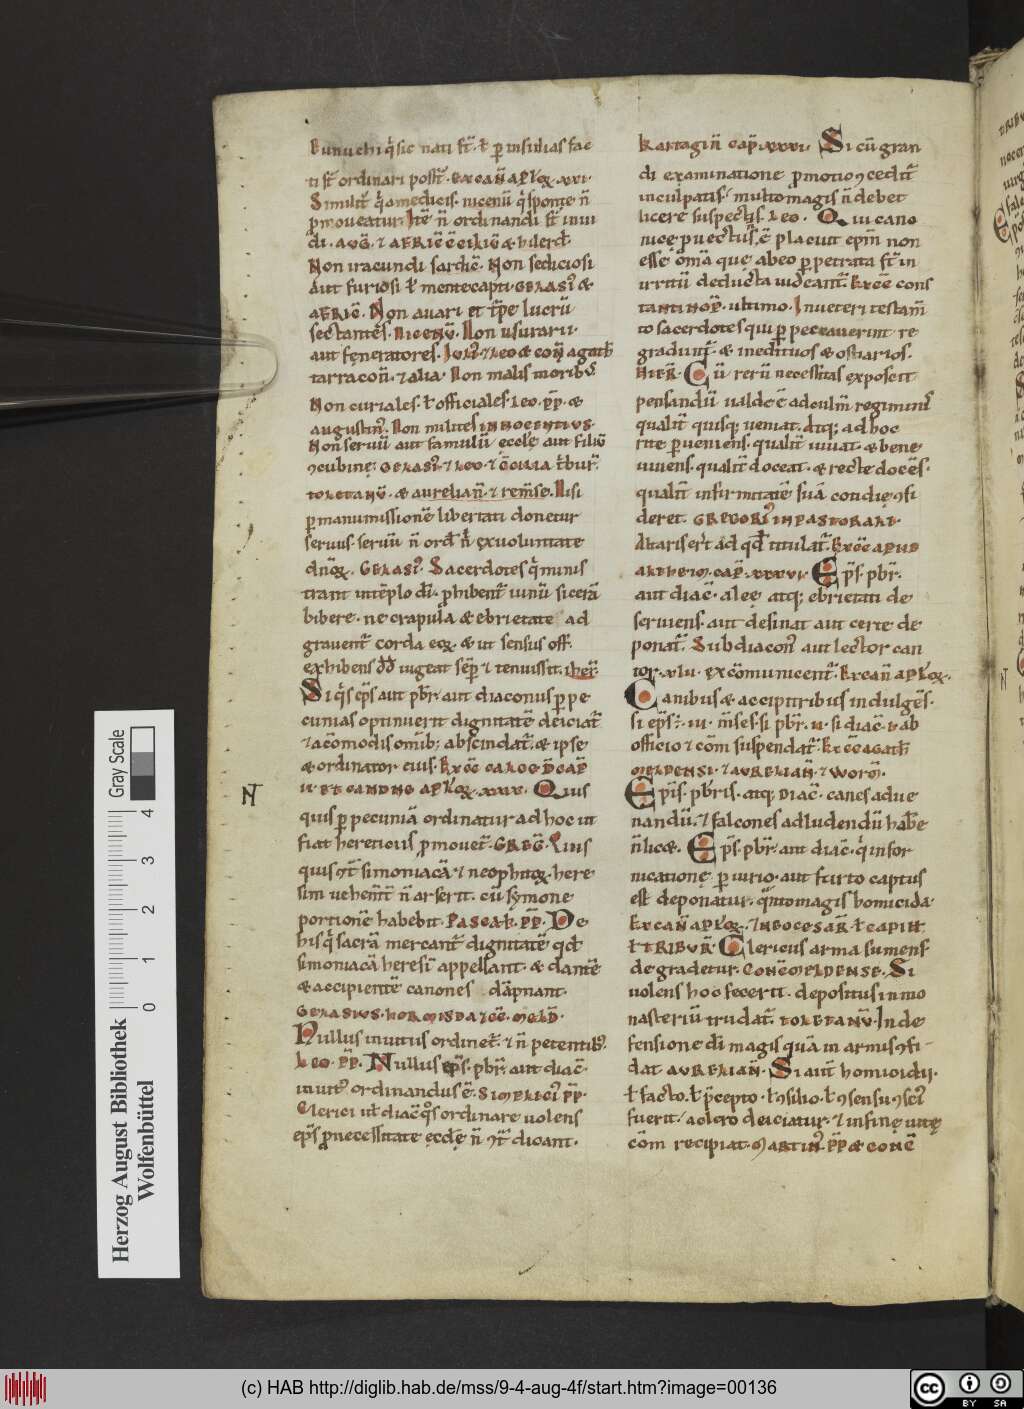 Eunuchi q̉ sic nati st̄. ł p insidias fac
ti st̄ ordinari poss̄t. EX CAÑ APL̓OꝜ. XXI.
Similit̄ q̉ a medicis. nicenū. q̉ sponte n̄
ꝓmoueatur. Itē n̄ ordinandi st̄ inui
di. AUḠ. ⁊
Non iracundi sardic̄. Non sediciosi
Aut furiosi ł mente capti. GELASI⁹ &
AFRIC̄. Non auari et t̄pe lucrū
sectantes. NICENŪ. Non usurarii.
aut feneratores. & coñ agath̄
tarracoñ. ⁊ alia. Non malis moribꝰ
Non curiales. ł officiales. Leo. p̄p̄. &
augustiñ. Non milites INNOCENTIUS.
Non seruū aut famulū ęcclę aut filiū
ꝯcubinę. GELASI⁹ ⁊ LEO.
TOLETANŪ. & aurelian̄. ⁊ rem̄se. Nisi
p manumissionē libertati donetur
seruus. seruū n̄ ord̄ n̄ ex uoluntate
dn̄oꝝ. GELASI⁹. Sacerdotes q̉ minis
trant in tēplo dī. ꝓhibent̄ uinū sicerā
bibere. ne crapula & ebrietate ad
grauent̄ corda eoꝝ. & ut sensus off̄.
exhibens dō uigeat sēp ⁊ tenuis sit. iher̄.
Si q̉s ep̄s aut pbr̄. aut diaconus p pe
cunias optinuerit dignitatē deiciat̄
⁊ acōmodis omīb; abscindat̄. & ipse
& ordinator eius.
II. ET CANONE APL̓OꝜ. XXIX. Quis
quis p pecuniā ordinatur ad hoc ut
fiat hereticus ꝓmouet̄. GREḠ. Quis
quis ꝯt̄ simoniacā ⁊ neophitoꝝ here
sim uehem̄t n̄ arserit. cū symone
portionē habebit. PASCAL. P̄P̄. De
his q̉ sacrā mercant̄ dignitatē qd̄
simoniacā heresī appellant. & dantē
& accipientē canones dāpnant.
GELASIUS. HORMISDA
Nullus inuitus ordinet̄. ⁊ n̄ petentibꝰ.
LEO. P̄P̄. Nullus ep̄s. pbr̄. aut diac̄.
inuitꝰ ordinandus ē. SIMPLICI⁹ P̄P̄.
Clerici ul̄ diac̄ q̉s ordinare uolens
ep̄s ꝓ necessitate ęcclę n̄ ꝯt̄ dicant.
Kartagiñ cap̄. xxxvi. Si cū gran
di examinatione ꝓmoti ꝯcedit̄
inculpatis. multo magis n̄ debet
licere suspectis. LEO. Qui cano
nicę puectus ē placuit ep̄m non
esse. ōma que ab eo p petrata st̄ in
irritū deducta uideant̄.
TANTINOP̄. ultimo. In ueteri testam̄
to sacerdotes qui p peccauerint re
gradunt̄. & in edituos & ostiarios.
HIER̄. Cū rerū necessitas exposcit
pensandū ualde ē ad culm̄ regiminꝭ
qualit̄ quisq; ueniat. atq; ad hoc
rite p ueniens. qualit̄ uiuat. & bene
uiuens. qualit̄ doceat. & recte docēs.
qualit̄ infirmitatē suā cotidię ꝯsi
deret. GREGORI⁹ IN PASTORALI.
Altari
Ep̄s. pbr̄.
aut diac̄. alee atq; ebrietati de
seruiens. aut desinat aut certe de
ponat̄. Subdiacon⁹ aut lector can
tor. xlii. excōmunicent̄. EX CAÑ APL̓OꝜ.
Canibus & accipitribus indulgēs.
si ep̄s. iii. m̄ses. si pbr̄. ii. si diac̄. i. ab
officio ⁊ cōm suspendat̄. EX C̄C AGATH̄
MELDENSI. ⁊ AURELIAÑ. ⁊ WORM̄.
Ep̄is. pb̄ris. atq; diac̄. canes ad ue
nandū. ⁊ falcones ad ludendū hab̄e
n̄ licet. Ep̄s. pbr̄. aut diac̄. q̉ in for
nicatione. p iurio. aut furto captus
est deponatur. q̉nto magis homicida.
EX CAÑ APL̓OꝜ. ⁊ NEOCESAR̄. ł CAPIT̄
ł TRIBUR̄. Clericus arma sumens
degradetur. CONC̄ MELDENSE. Si
uolens hoc fecerit. depositus in mo
nasteriū trudat̄. TOLETANŪ. In de
fensione dī magis quā in armis ꝯfi
dat. AURELIAÑ. Si aut̄ homicidii.
ł facto. ł p̄cepto. ł ꝯsilio. ł ꝯsensu ꝯsci⁹
fuerit. a clero deiciatur. ⁊ in finę uitę
cōm recipiat. MARTIN⁹ P̄P̄ & CONC̄
Herzog August Bibliothek
Wolfenbüttel
0 1 2 3 4
Gray Scale
(c) HAB http://diglib.hab.de/mss/9-4-aug-4f/start.htm?image=00136
cc BY SA